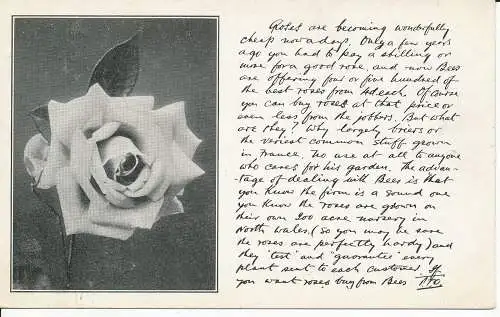 Roses are becoming wonderfully
cheap nowadays. Only a few years
ago you had to pay a shilling or
more for a good rose, and now Bees
are offering four or five hundred of
the best roses from 4d. each. Of course
you can buy roses at that price or
even less from the jobbers. But what
are they? Why largely briers or
the veriest common stuff grown
in France, no use at all to anyone
who cares for his garden. The advan-
tage of dealing with Bees is that
you know the firm is a sound one
you know the roses are grown on
their own 200 acre nursery in
North Wales, (so you may be sure
the roses are perfectly hardy) and
they "test" and "guarantee" every
plant sent to each customer. If
you want roses buy from Bees